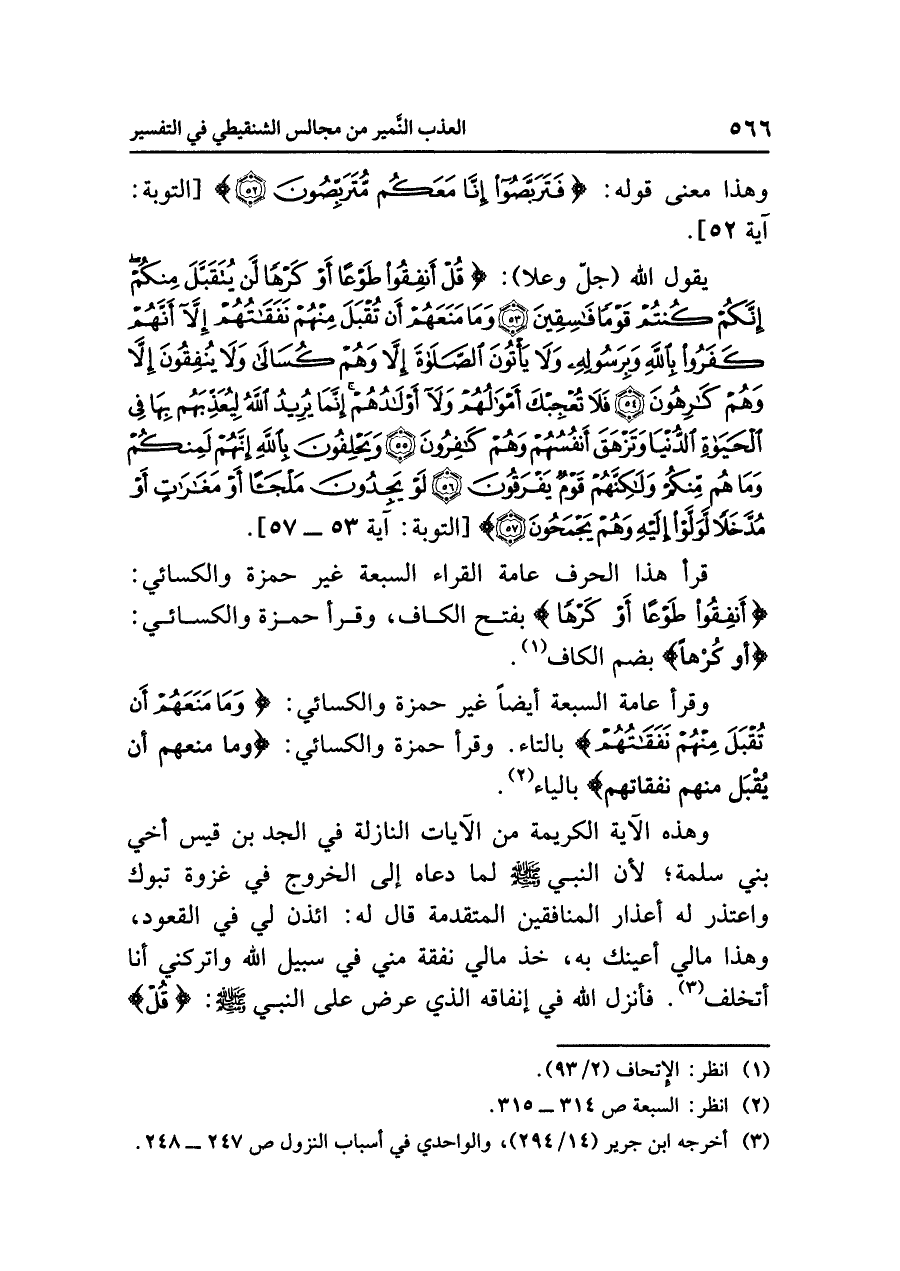 ٥٦٦ العذب النَّمير من مجالس الشنقيطي في التفسير
وهذا معنى قوله: ﴿ فَتَرَبَّصُوٓا۟ إِنَّا مَعَكُم مُّتَرَبِّصُونَ ۝٥٢ ﴾ [التوبة:
آية ٥٢].
يقول الله (جلّ وعلا): ﴿ قُلْ أَنفِقُوا۟ طَوْعًا أَوْ كَرْهًا لَّن يُتَقَبَّلَ مِنكُمْ ۖ
إِنَّكُمْ كُنتُمْ قَوْمًا فَٰسِقِينَ ۝٥٣ وَمَا مَنَعَهُمْ أَن تُقْبَلَ مِنْهُمْ نَفَقَٰتُهُمْ إِلَّآ أَنَّهُمْ
كَفَرُوا۟ بِٱللَّهِ وَبِرَسُولِهِۦ وَلَا يَأْتُونَ ٱلصَّلَوٰةَ إِلَّا وَهُمْ كُسَالَىٰ وَلَا يُنفِقُونَ إِلَّا
وَهُمْ كَٰرِهُونَ ۝٥٤ فَلَا تُعْجِبْكَ أَمْوَٰلُهُمْ وَلَآ أَوْلَٰدُهُمْ ۚ إِنَّمَا يُرِيدُ ٱللَّهُ لِيُعَذِّبَهُم بِهَا فِى
ٱلْحَيَوٰةِ ٱلدُّنْيَا وَتَزْهَقَ أَنفُسُهُمْ وَهُمْ كَٰفِرُونَ ۝٥٥ وَيَحْلِفُونَ بِٱللَّهِ إِنَّهُمْ لَمِنكُمْ
وَمَا هُم مِّنكُمْ وَلَٰكِنَّهُمْ قَوْمٌ يَفْرَقُونَ ۝٥٦ لَوْ يَجِدُونَ مَلْجَـًٔا أَوْ مَغَٰرَٰتٍ أَوْ
مُدَّخَلًا لَّوَلَّوْا۟ إِلَيْهِ وَهُمْ يَجْمَحُونَ ۝٥٧﴾ [التوبة: آية ٥٣ ــ ٥٧].
قرأ هذا الحرف عامة القراء السبعة غير حمزة والكسائي:
﴿ أَنفِقُوا۟ طَوْعًا أَوْ كَرْهًا ﴾ بفتح الكاف، وقرأ حمزة والكسائي:
﴿أو كُرْهاً﴾ بضم الكاف(١).
وقرأ عامة السبعة أيضاً غير حمزة والكسائي: ﴿ وَمَا مَنَعَهُمْ أَن
تُقْبَلَ مِنْهُمْ نَفَقَٰتُهُمْ ﴾ بالتاء. وقرأ حمزة والكسائي: ﴿وما منعهم أن
يُقْبَل منهم نفقاتهم﴾ بالياء(٢).
وهذه الآية الكريمة من الآيات النازلة في الجد بن قيس أخي
بني سلمة؛ لأن النبي ﷺ لما دعاه إلى الخروج في غزوة تبوك
واعتذر له أعذار المنافقين المتقدمة قال له: ائذن لي في القعود،
وهذا مالي أعينك به، خذ مالي نفقة مني في سبيل الله واتركني أنا
أتخلف(٣). فأنزل الله في إنفاقه الذي عرض على النبي ﷺ: ﴿ قُلْ﴾
(١) انظر: الإتحاف (٢/ ٩٣).
(٢) انظر: السبعة ص ٣١٤ ــ ٣١٥.
(٣) أخرجه ابن جرير (١٤/ ٢٩٤)، والواحدي في أسباب النزول ص ٢٤٧ ــ ٢٤٨.